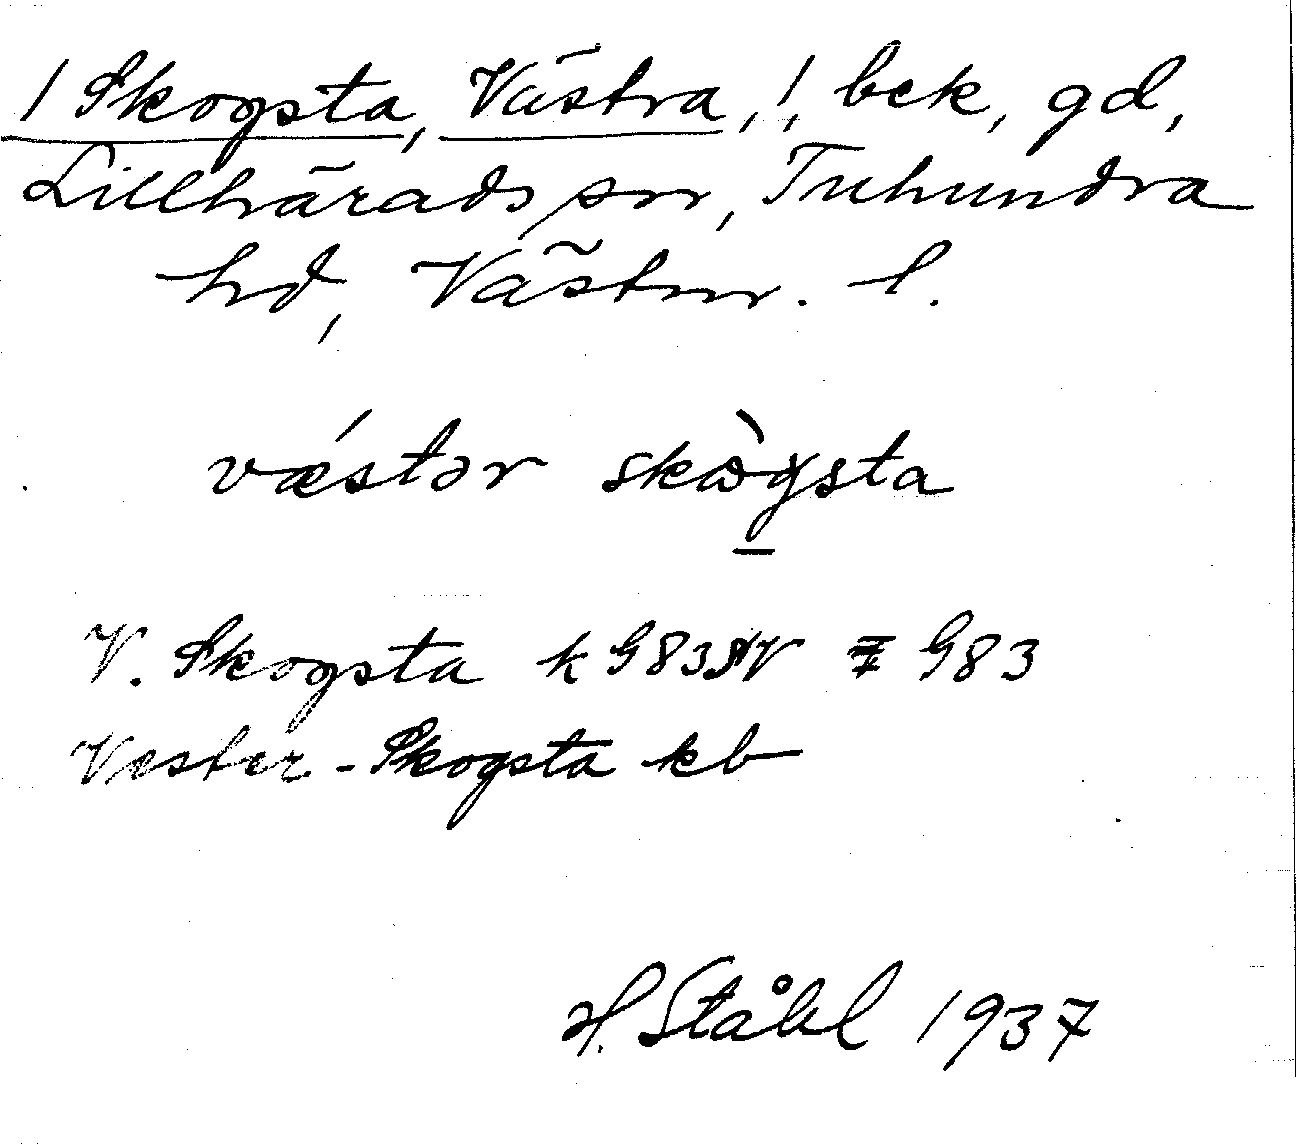 / Skogsta, Västra, /, bek, gd,
Lillhärads sn, Tuhundra
hd, Västm. l.
vǽstər skɷ̀gsta
V. Skogsta k G 83 G 83
Vester-Skogsta kb
H. Ståhl 1937